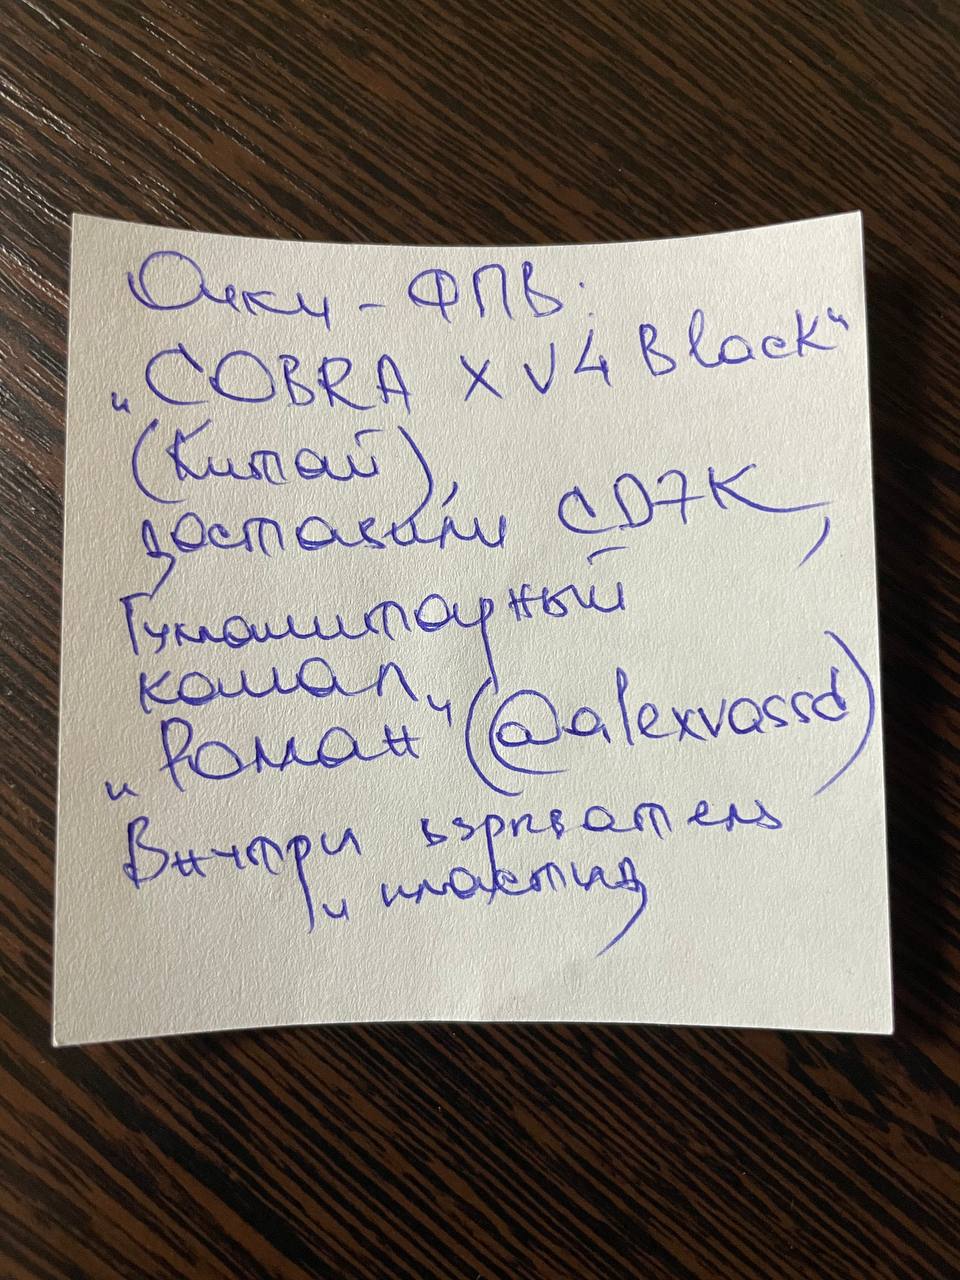 Очки - ФПВ:
„COBRA X V4 Black"
(Китай),
доставили CD7K,
Гуманитарный
канал,
„Роман" (@alexvassd)
Внутри взрыватель
и пластид